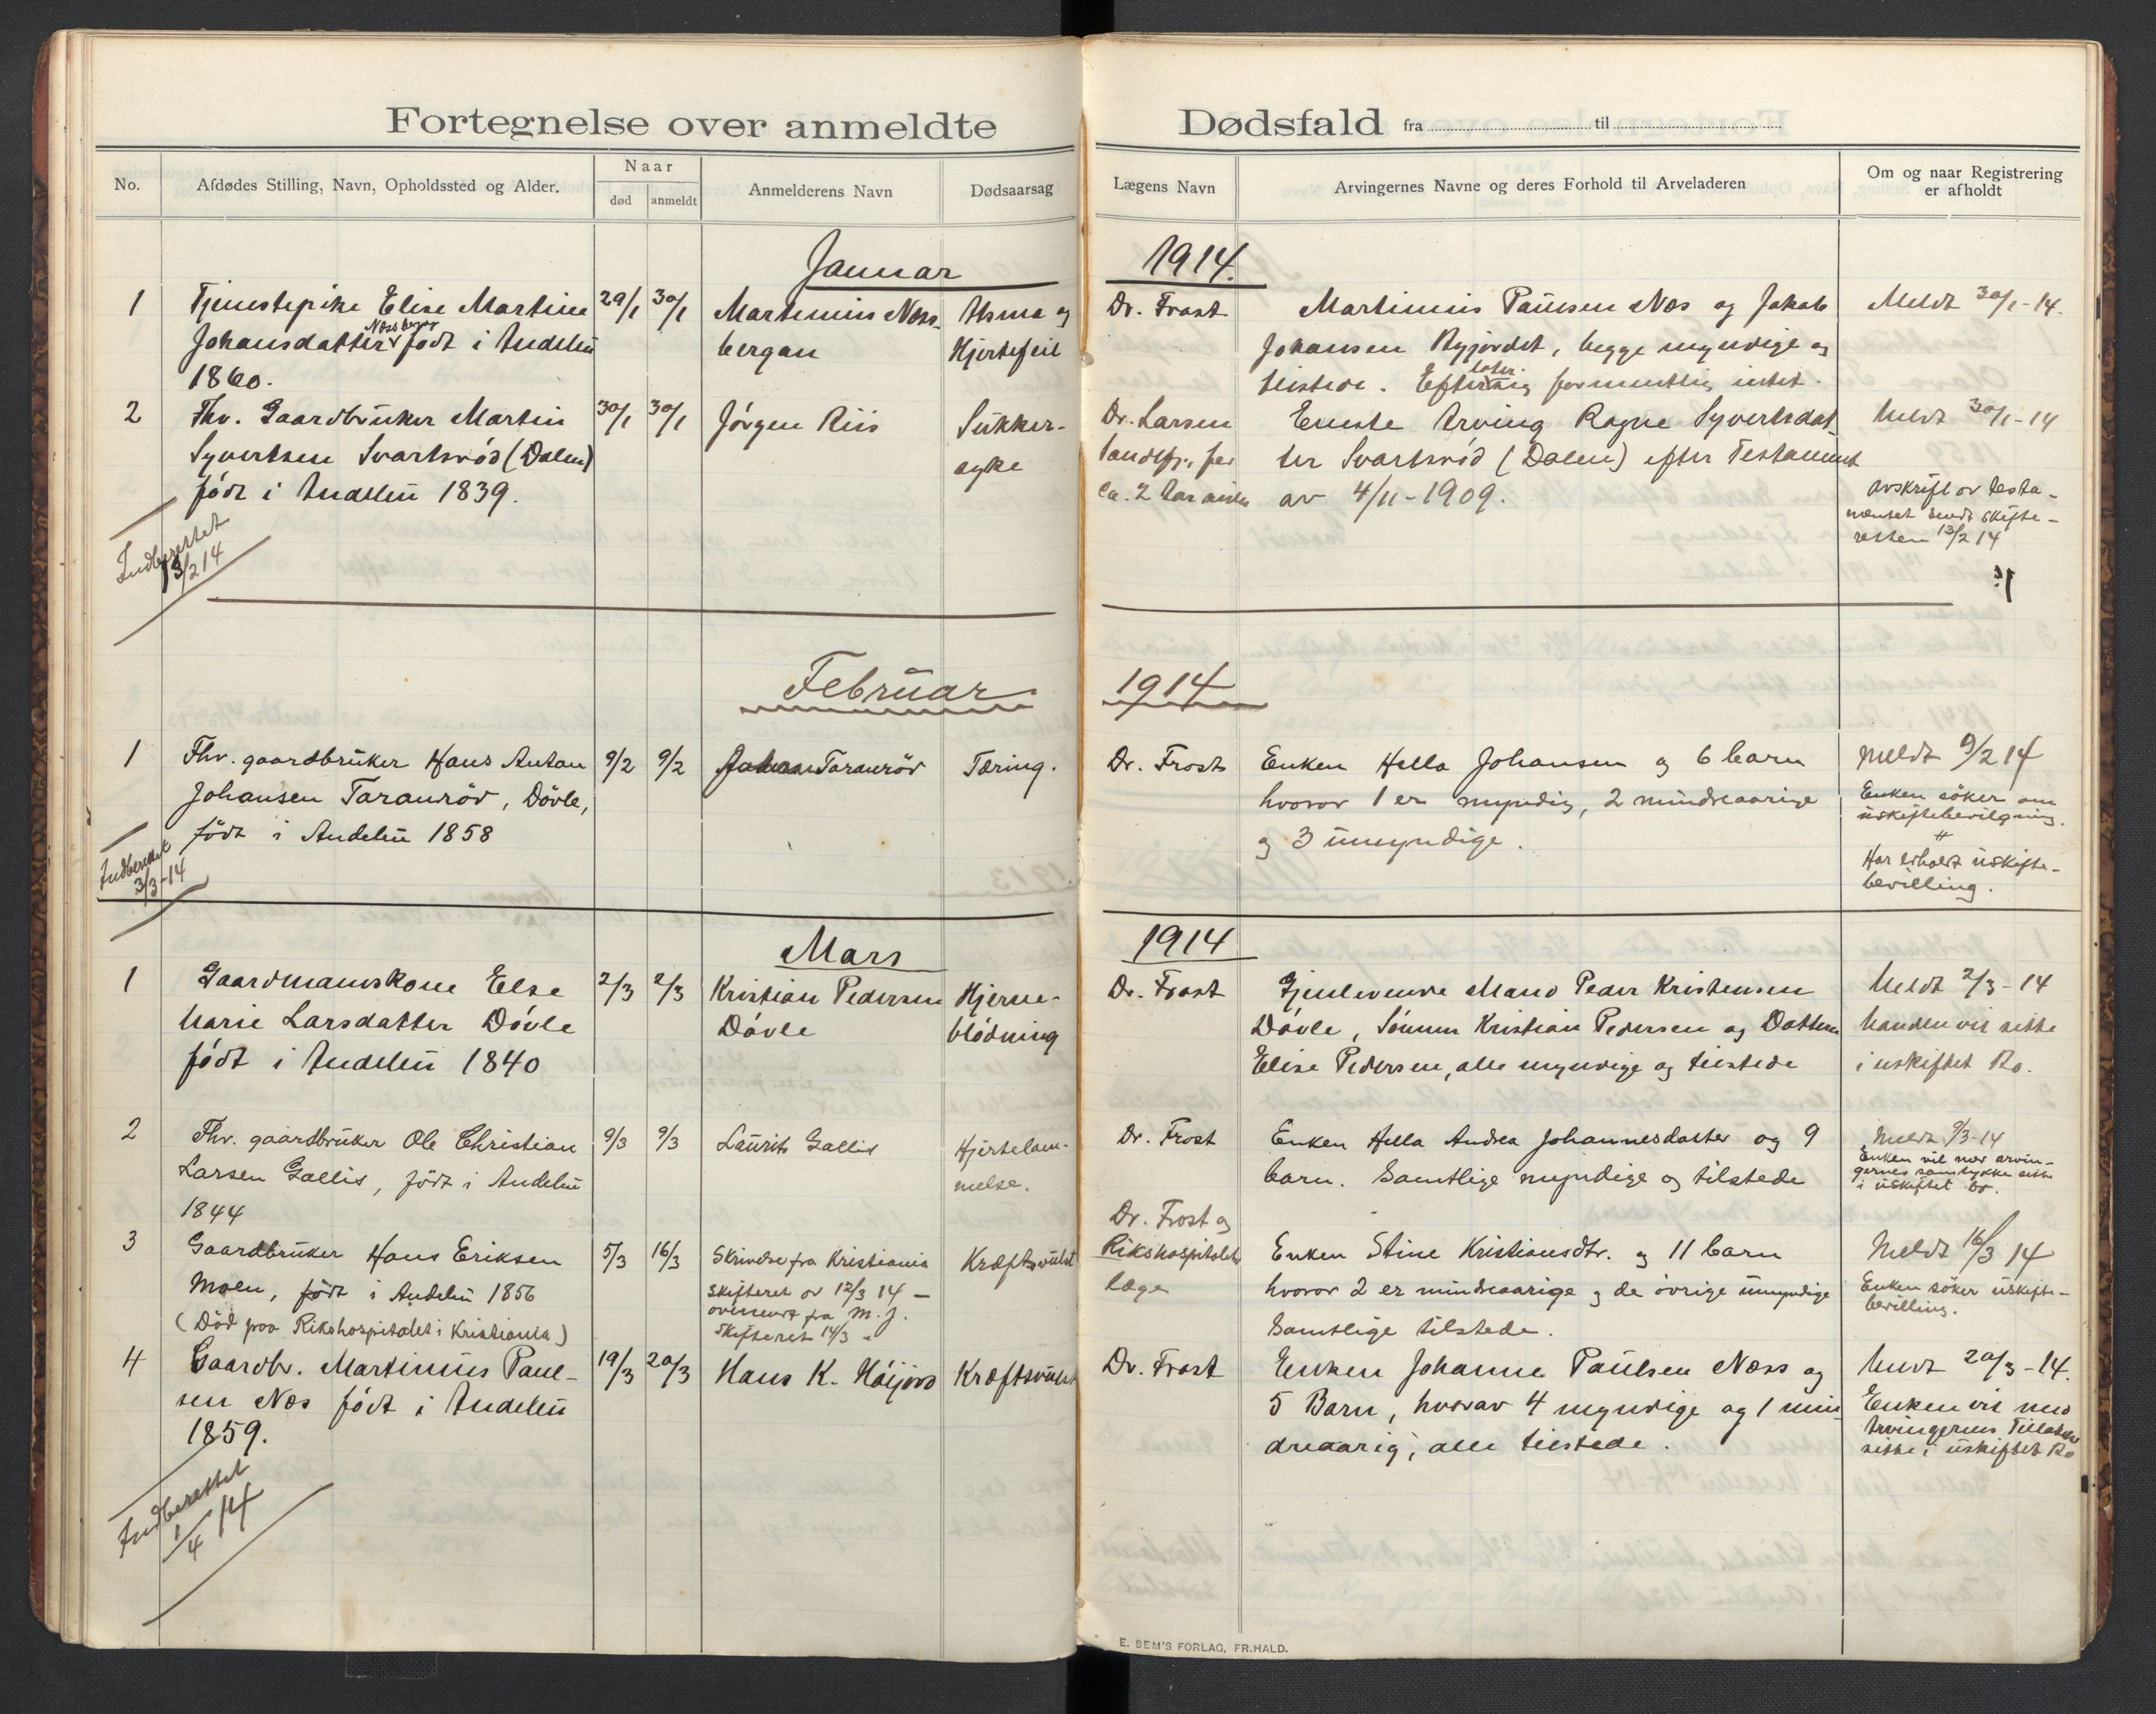 Fortegnelse over anmeldte Dødsfald fra til
No.
Afdødes Stilling, Navn, Opholdssted og Alder.
Naar
død
anmeldt
Anmelderens Navn
Dødsaarsag
Lægens Navn
Arvingernes Navne og deres Forhold til Arveladeren
Om og naar Registrering
er afholdt
Januar 1914.
1 Tjenestepike Elise Martine
Næsberg
Johansdatter født i Andebu
1860.
29/1 30/1
Martinius Næs-
bergan
Astma og
Hjertefeil
Dr. Frost
Martinius Paulsen Næs og Jakob
Johansen Nyjordet, begge myndige og
tilstede. Efterlater sig formentlig intet.
Meldt 30/1-14.
2 Fhv. Gaardbruker Martin
Syvertsen Svartsrød (Dalen)
født i Andebu 1839.
30/1 30/1
Jørgen Riis
Sukker-
syke
Dr. Larsen
Sandefj. for
ca. 2 aar siden
Eneste Arving Ragne Syvertsdat-
ter Svartsrød (Dalen) efter Testament
av 4/11-1909.
Meldt 30/1-14
Avskrift av testa-
mentet sendt skifte-
retten 13/2 14
Indberettet
13/2 14
Februar 1914
1 Fhv. gaardbruker Hans Anton
Johansen Taranrød, Døvle,
født i Andebu 1858
9/2 9/2
Johan Taranrød
Tæring.
Dr. Frost
Enken Hella Johansen og 6 barn
hvorav 1 er myndig, 2 mindreaarige
og 3 umyndige.
Meldt 9/2 14
Enken søker om
uskiftebevilgning.
Har erholdt uskifte-
bevilling.
Indberettet
3/3-14
Mars 1914
1 Gaardmandskone Else
Marie Larsdatter Døvle
født i Andebu 1840
2/3 2/3
Kristian Pedersen
Døvle
Hjerne-
blødning
Dr. Frost
Gjenlevende Mand Peder Kristensen
Døvle, Sønnen Kristian Pedersen og Datteren
Elise Pedersen, alle myndige og tilstede
Meldt 2/3-14
Manden vil sitte
i uskiftet Bo.
2 Fhv. gaardbruker Ole Christian
Larsen Gallis, født i Andebu
1844
9/3 9/3
Laurits Gallis
Hjertelam-
melse.
Dr. Frost
Enken Hella Andrea Johannesdatter og 9
barn. Samtlige myndige og tilstede
Meldt 9/3-14
Enken vil med arvin-
gernes samtykke sitte
i uskiftet bo.
3 Gaardbruker Hans Eriksen
Moen, født i Andebu 1856
(Død paa Rikshospitalet i Kristiania)
5/3 16/3
Skrivelse fra Kristiania
Skifteret av 12/3 14 –
oversendt fra M. J.
Skifteret 14/3
Kræftsvulst
Dr. Frost og
Rikshospitalets
læge
Enken Stine Kristiansdtr. og 11 barn
hvorav 2 er mindreaarige og de øvrige umyndige
Samtlige tilstede.
Meldt 16/3 14
Enken søker uskifte-
bevilling.
4 Gaardbr. Martinius Paul-
sen Næs født i Andebu
1859.
19/3 20/3
Hans K. Høijord
Kræftsvulst
Dr. Frost
Enken Johanne Paulsen Næss og
5 Barn, hvorav 4 myndige og 1 min-
dreaarig, alle tilstede.
Meldt 20/3-14.
Enken vil med
Arvingernes Tilladelse
sitte i uskiftet Bo
Indberettet
1/4 14
E. SEM'S FORLAG, FR.HALD.